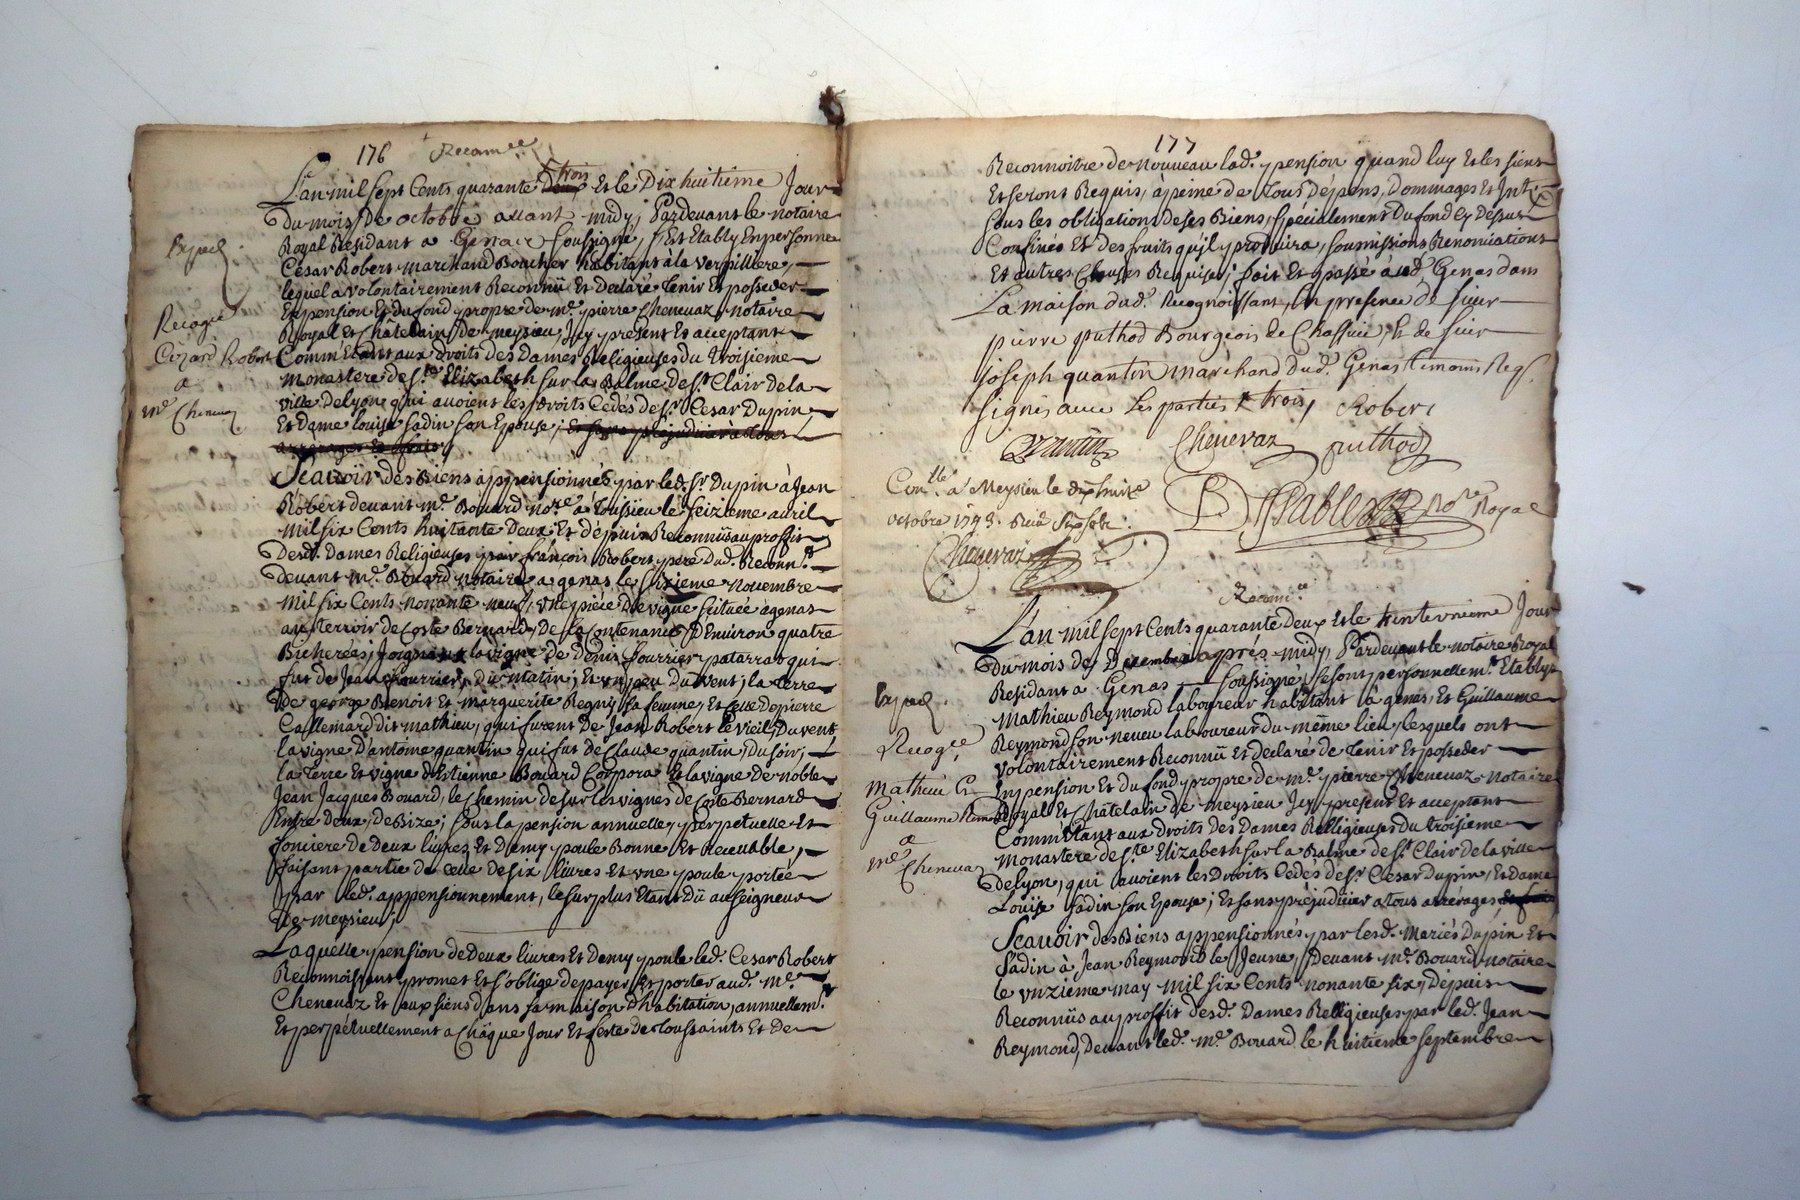 176 Reconn.ce
trois
L'an mil sept Cents quarante Deux Et le Dix huitieme Jour
Du mois De octobre avant midy, Pardevant le notaire
Royal Residant a Genas soussigné, s'Est Etably En personne
César Robert marchand Boucher habitant à la Verpilliere,
lequel a volontairement Reconnü Et Declaré Tenir Et posseder
En pension Et du fond propre de m.e pierre Chenevaz notaire
Royal Et Chatelain De meysieu, Jcy present Et acceptant
Comm'Etant aux droits des Dames Religieuses Du troisieme
monastere de S.te Elizabeth sur la Balme de S.t Clair de la
ville de lyon qui avoient les Droits Cedés de s.r Cesar Dupin
Et Dame louise sadin son Epouse, Et sans préjudicier à tous
arrérages
Expéd.
Recogn.ce
Cezard Robert
a
m.e Chenevaz
Scavoir des Biens appensionnés par led. s.r Dupin à Jean
Robert devant m.e Bouard no.re à Toussieu le seizieme avril
mil six Cents huitante Deux, Et depuis Reconnüs au proffit
Desd. Dames Religieuses par françois Robert pere Du d. Reconn.t
devant m.e Bouard notaire a genas le sixieme novembre
mil six Cents nonante neuf, vne piéce de vigne scituée a genas
au terroir de Coste Bernard, De la Contenance D'Environ quatre
Bicherées, Joignant la vigne de Denis fourrier patarrat qui
fut de Jean fourrier, Du matin; Et vn peu Du vent; la terre
De george Benoit Et marguerite Regny sa femme, Et Celle De pierre
Callemard dit mathieu, qui furent de Jean Robert le vieil, Du vent,
la vigne D'antoine quantin qui fut de Claude quantin, Du soir,
la terre Et vigne d'Estienne Bouard Corpora Et la vigne De noble
Jean Jacques Bouard, le Chemin de sur les vignes de Coste Bernard
Entre Deux, De Bize; sous la pension annuelle, perpetuelle Et
fonciere de Deux livres Et Demy poule Bonne Et Recevable,
faisant partie de Celle de six livres Et vne poule portée
par led. appensionnement, le surplus Etant Dü au seigneur
De meysieu,
Laquelle pension de Deux livres Et Demy poule led. Cesar Robert
Reconnoissant promet Et s'oblige de payer Et porter aud. m.e
Chenevaz Et aux siens dans sa maison D'habitation, annuellem.t
Et perpétuellement a Chaque Jour Et feste De Toussaints Et De
177
Reconnoitre de nouveau lad. pension quand luy Et les siens
En seront Requis, à peine de Tous Dépens, Dommages Et Int.
sous les obligations de ses Biens, specialement Du fond Cy dessus
Confiné Et des fruits qu'il y produira, soumissions Renonciations
Et autres Clauses Requises; fait Et passé aud. Genas dans
La maison dud. Recognoissant, En presence de sieur
pierre puthod Bourgeois de Chassieu, & de sieur
joseph quantin marchand dud. Genas temoins Req.
signés avec Les parties & trois, Robert
quantin Chenevaz puthod
Con.llé a Meysieu le dix huit.e
octobre 1743.
Chenevaz
Sablet No.re Royal
Reconn.ce
L'an mil sept Cents quarante Deux Et le trente vnieme Jour
Du mois de Decembre apprés midy, Pardevant le notaire Royal
Residant a Genas soussigné, se sont personnellem.t Etablys
Mathieu Reymond laboureur habitant à genas, Et Guillaume
Reymond son neveu laboureur du même lieu, lesquels ont
volontairement Reconnü Et Declaré de Tenir Et posseder
En pension Et du fond propre de m.e pierre Chenevaz notaire
Royal Et Châtelain de meysieu Jcy present Et acceptant
Comm'Etant aux droits des Dames Relligieuses Du troisieme
monastere de S.te Elizabeth sur la Balme de S.t Clair de la ville
De lyon, qui avoient les Droits Cedés de s.r Cesar Dupin, Et Dame
Loüise sadin son Epouse; Et sans préjudicier a tous arrérages
Expéd.
Recogn.ce
Mathieu &
Guillaume Remond
a
m.e Chenevaz
Scavoir des Biens appensionnés par lesd. mariés Dupin Et
sadin à Jean Reymond le Jeune, Devant m.e Bouard notaire
le vnzieme may mil six Cents nonante six, Depuis
Reconnüs au proffit desd. Dames Relligieuses par led. Jean
Reymond, Devant led. m.e Bouard le huitieme septembre